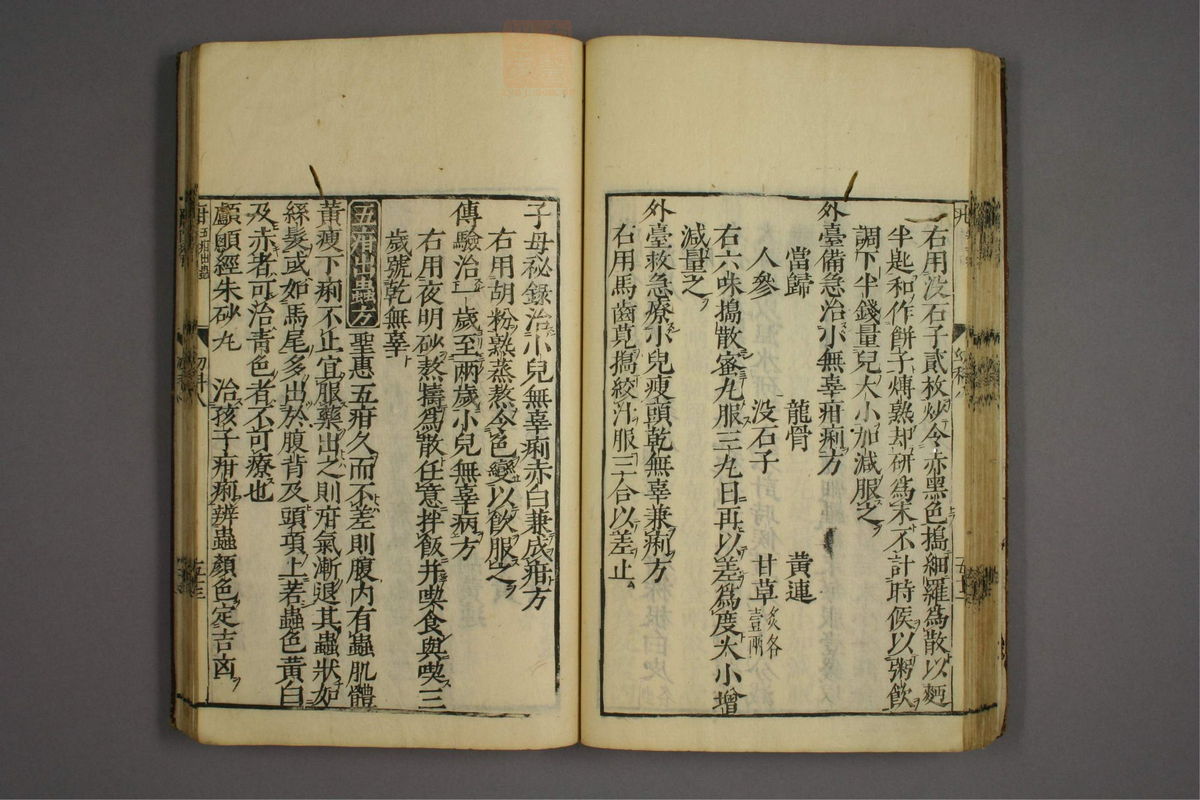 右用没石子貳枚炒令赤黑色搗細羅為散以麪
半匙和作餅子煿熟却研為末不計時候以粥飲
調下半錢量兒大小加減服之
外臺備急治小無辜疳痢方
當歸 龍骨 黃連
人參 没石子 甘草炙各壹兩
右六味搗散蜜丸服三丸日再以差為度大小增
減量之
外臺救急療小兒瘦頭乾無辜兼痢方
右用馬齒莧搗絞汁服三合以差止
子母秘錄治小兒無辜痢赤白兼成疳方
右用胡粉熟蒸熬令色變以飲服之
傳驗治一歲至兩歲小兒無辜病方
右用夜明砂熬擣為散任意拌飯并喫食與喫三
歲號乾無辜
五疳出蟲方 聖惠五疳久而不差則腹內有蟲肌體
黃瘦下痢不止宜服藥出之則疳氣漸退其蟲狀如
絲髮或如馬尾多出於腹背及頭項上若蟲色黃白
及赤者可治青色者不可療也
顱顖經朱砂丸 治孩子疳痢辨蟲顏色定吉凶
五十三